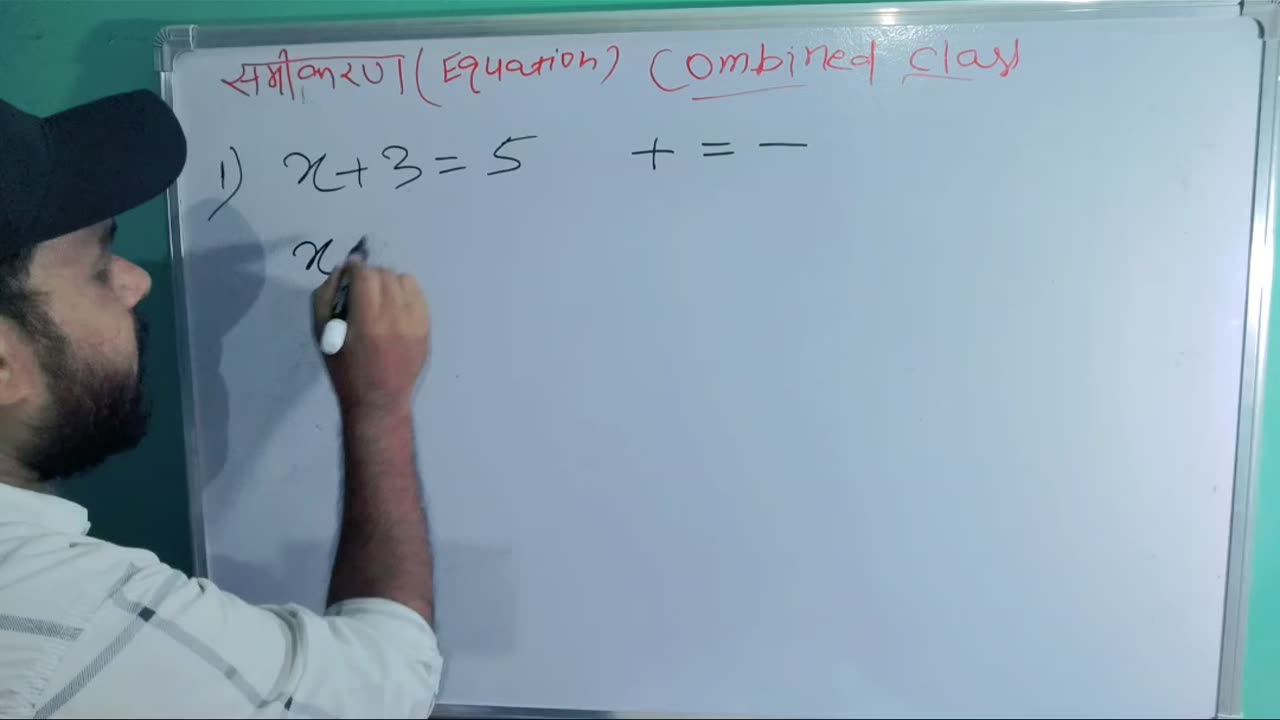 समीकरण (Equation) Combined class
1) x+3=5 + = −
x